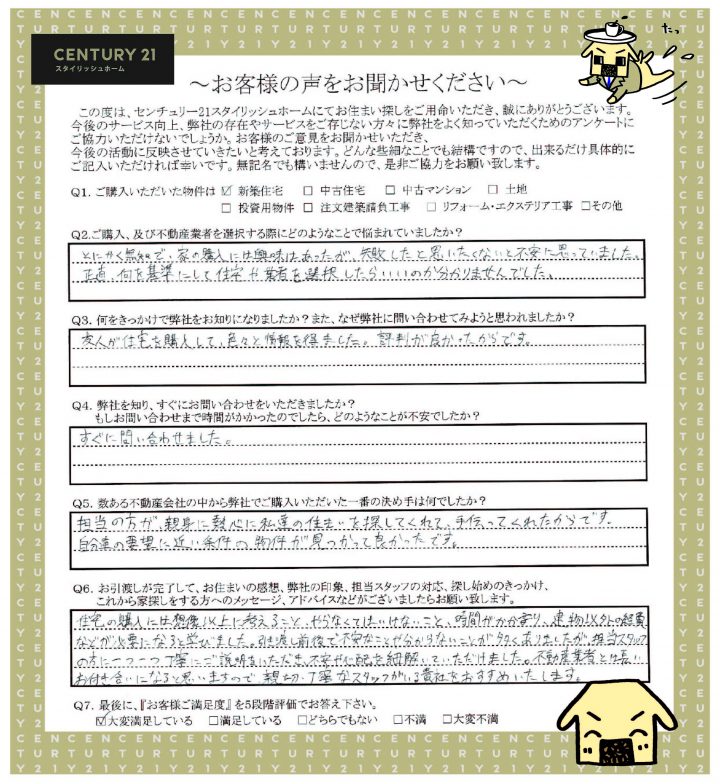 CENTURY 21
スタイリッシュホーム
たっ
～お客様の声をお聞かせください～
この度は、センチュリー21スタイリッシュホームにてお住まい探しをご用命いただき、誠にありがとうございます。
今後のサービス向上、弊社の存在やサービスをご存じない方々に弊社をよく知っていただくためのアンケートに
ご協力いただけないでしょうか。お客様のご意見をお聞かせいただき、
今後の活動に反映させていきたいと考えております。どんな些細なことでも結構ですので、出来るだけ具体的に
ご記入いただければ幸いです。無記名でも構いませんので、是非ご協力をお願い致します。
Q1. ご購入いただいた物件は ☑ 新築住宅 □ 中古住宅 □ 中古マンション □ 土地
□ 投資用物件 □ 注文建築請負工事 □ リフォーム・エクステリア工事 □その他
Q2.ご購入、及び不動産業者を選択する際にどのようなことで悩まれていましたか?
とにかく無知で、家の購入には興味はあったが、失敗したと思いたくないと不安に思っていました。
正直、何を基準にして住宅や業者を選択したらいいのか分かりませんでした。
Q3. 何をきっかけで弊社をお知りになりましたか?また、なぜ弊社に問い合わせてみようと思われましたか?
友人が住宅を購入して、色々と情報を得ました。評判が良かったからです。
Q4. 弊社を知り、すぐにお問い合わせをいただきましたか?
もしお問い合わせまで時間がかかったのでしたら、どのようなことが不安でしたか?
すぐに問い合わせました。
Q5. 数ある不動産会社の中から弊社でご購入いただいた一番の決め手は何でしたか?
担当の方が、親身に熱心に私達の住まいを探してくれて、手伝ってくれたからです。
自分達の要望に近い条件の物件が見つかって良かったです。
Q6. お引渡しが完了して、お住まいの感想、弊社の印象、担当スタッフの対応、探し始めのきっかけ、
これから家探しをする方へのメッセージ、アドバイスなどがございましたらお願い致します。
住宅の購入には想像以上に考えること、やらなくてはいけないこと、時間がかかり、建物以外の経費
などが必要になると学びました。引渡し前後で不安なことや分からないことが多くありましたが、担当スタッフ
の方に一つ一つ丁寧にご説明をいただき、不安や心配を紐解いていただけました。不動産業者とは長い
お付き合いになると思いますので、親切・丁寧なスタッフがいる貴社をおすすめいたします。
Q7. 最後に、『お客様ご満足度』を5段階評価でお答え下さい。
☑大変満足している □満足している □どちらでもない □不満 □大変不満